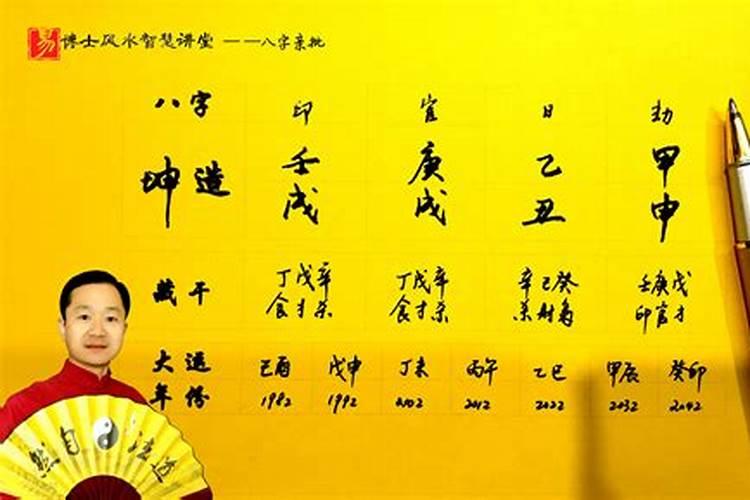 易 博士风水智慧讲堂 ——八字亲批
八字 印 官 日 劫
坤造 壬戌 庚戌 乙丑 甲申
藏干 丁戊辛 丁戊辛 辛己癸 壬庚戊
食才杀 食才杀 杀财枭 印官才
大运 己酉 戊申 丁未 丙午 乙巳 甲辰 癸卯
年份 1982 1992 2002 2012 2022 2032 2042
自然 道法